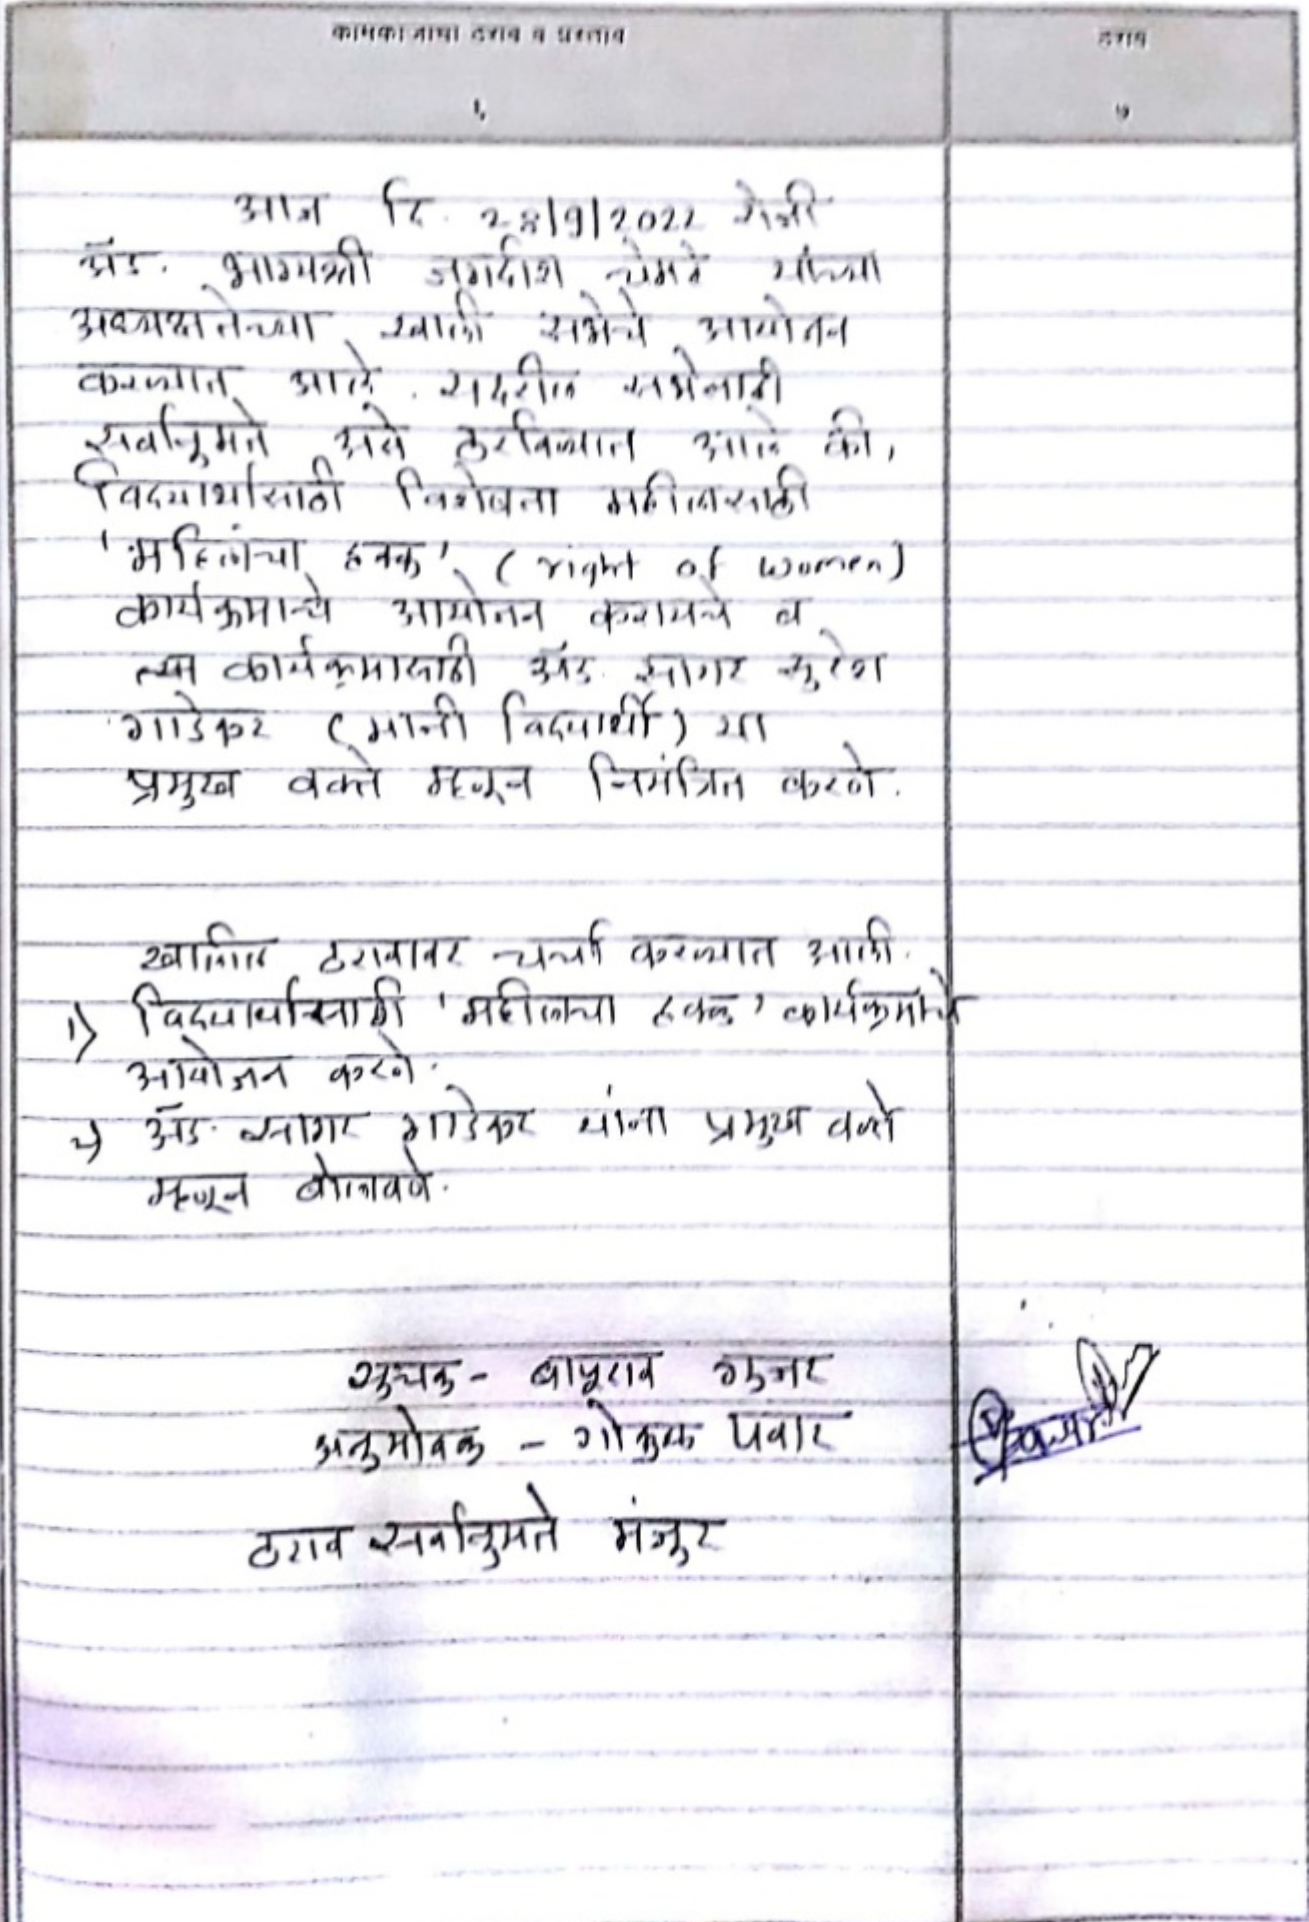 कामकाजाचा ठराव व प्रस्ताव
ठराव
६
७
आज दि. 28/9/2022 रोजी
अ‍ॅड. भाग्यश्री जगदीश यांच्या
अध्यक्षतेच्या खाली सभेचे आयोजन
करण्यात आले. सदरील सभेनाही
सर्वानुमते असे ठरविण्यात आले की,
विद्यार्थासाठी विशेषता महीलासाठी
'महिलांचा हक्क' (right of women)
कार्यक्रमाचे आयोजन करायचे व
त्या कार्यक्रमासाठी अ‍ॅड. सागर सुरेश
गाडेकर (माजी विद्यार्थी) या
प्रमुख वक्ते म्हणून निमंत्रित करणे.
खालील ठरावावर चर्चा करण्यात आली.
1) विद्यार्थासाठी 'महीलाचा हक्क' कार्यक्रमाचे
आयोजन करणे.
२) अ‍ॅड. सागर गाडेकर यांना प्रमुख वक्ते
म्हणून बोलावणे.
सुचक - बापूराव गुजर
अनुमोदक - गोकुळ पवार
ठराव सर्वानुमते मंजुर